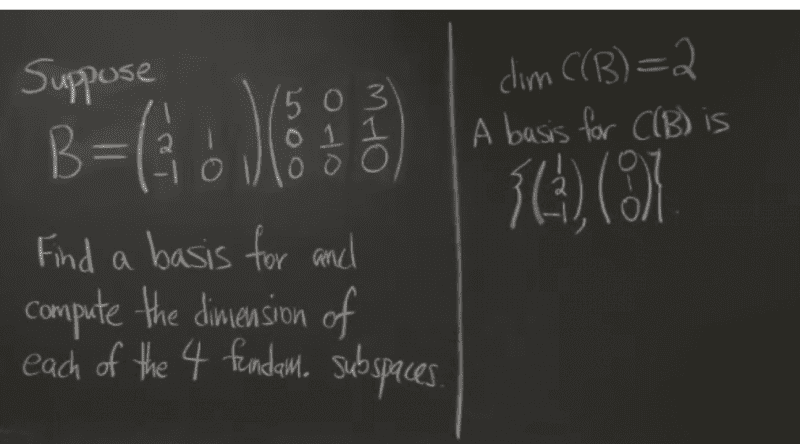 Suppose
B = ( 1
2 1
-1 0 1 ) ( 5 0 3
0 1 1
0 0 0 )
Find a basis for and
compute the dimension of
each of the 4 fundam. subspaces.
dim C(B) = 2
A basis for C(B) is
{ ( 1
2
-1 ), ( 0
1
0 ) }.